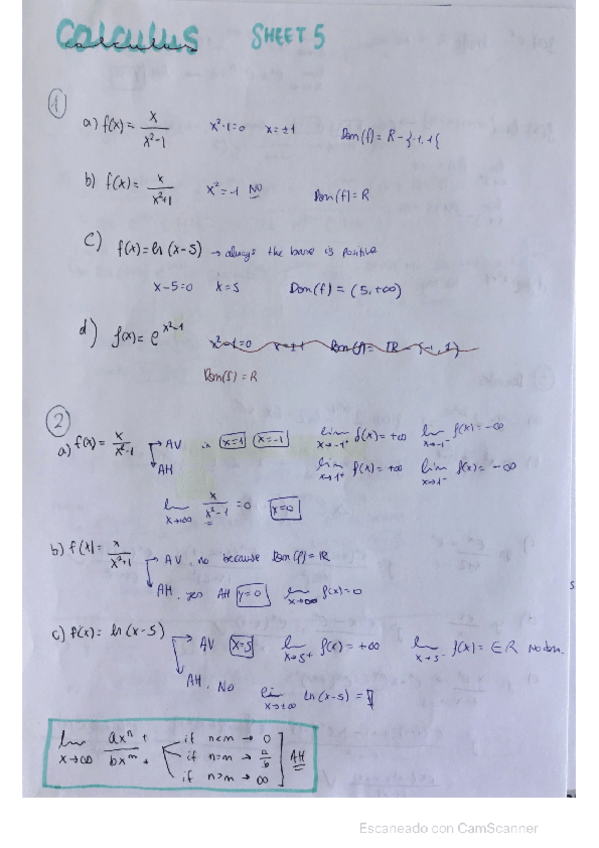 Calculus SHEET 5
calculus
1
a) f(x) = x/(x²-1) x²-1=0 x=±1 Dom(f) = R - {-1, 1{
b) f(x) = x/(x²+1) x²=-1 NO Dom(f) = R
c) f(x) = ln(x-5) → always the is positive
x-5=0 x=5 Dom(f) = (5,+∞)
d) f(x) = e^(x²-1) x²-1=0 x=±1 Dom(f) = R - {-1, 1}
Dom(f) = R
2
a) f(x) = x/(x²-1) → AV in x=1 x=-1 lim x→-1⁺ f(x) = +∞ lim x→-1⁻ f(x) = -∞
→ AH lim x→1⁺ f(x) = +∞ lim x→1⁻ f(x) = -∞
lim x→∞ x/(x²-1) = 0 x=0
b) f(x) = x/(x²+1) → AV, no because Dom(f) = R
→ AH, yes AH y=0 lim x→∞ f(x) = 0
c) f(x) = ln(x-5) → AV x=5 lim x→5⁺ f(x) = +∞ lim x→5⁻ f(x) = ∈ R
→ AH. No lim x→±∞ ln(x-5) =
lim x→∞ (axⁿ+)/(bxᵐ+) if n<m → 0
if n=m → a/b AH
if n>m → ∞
s
Escaneado con CamScanner